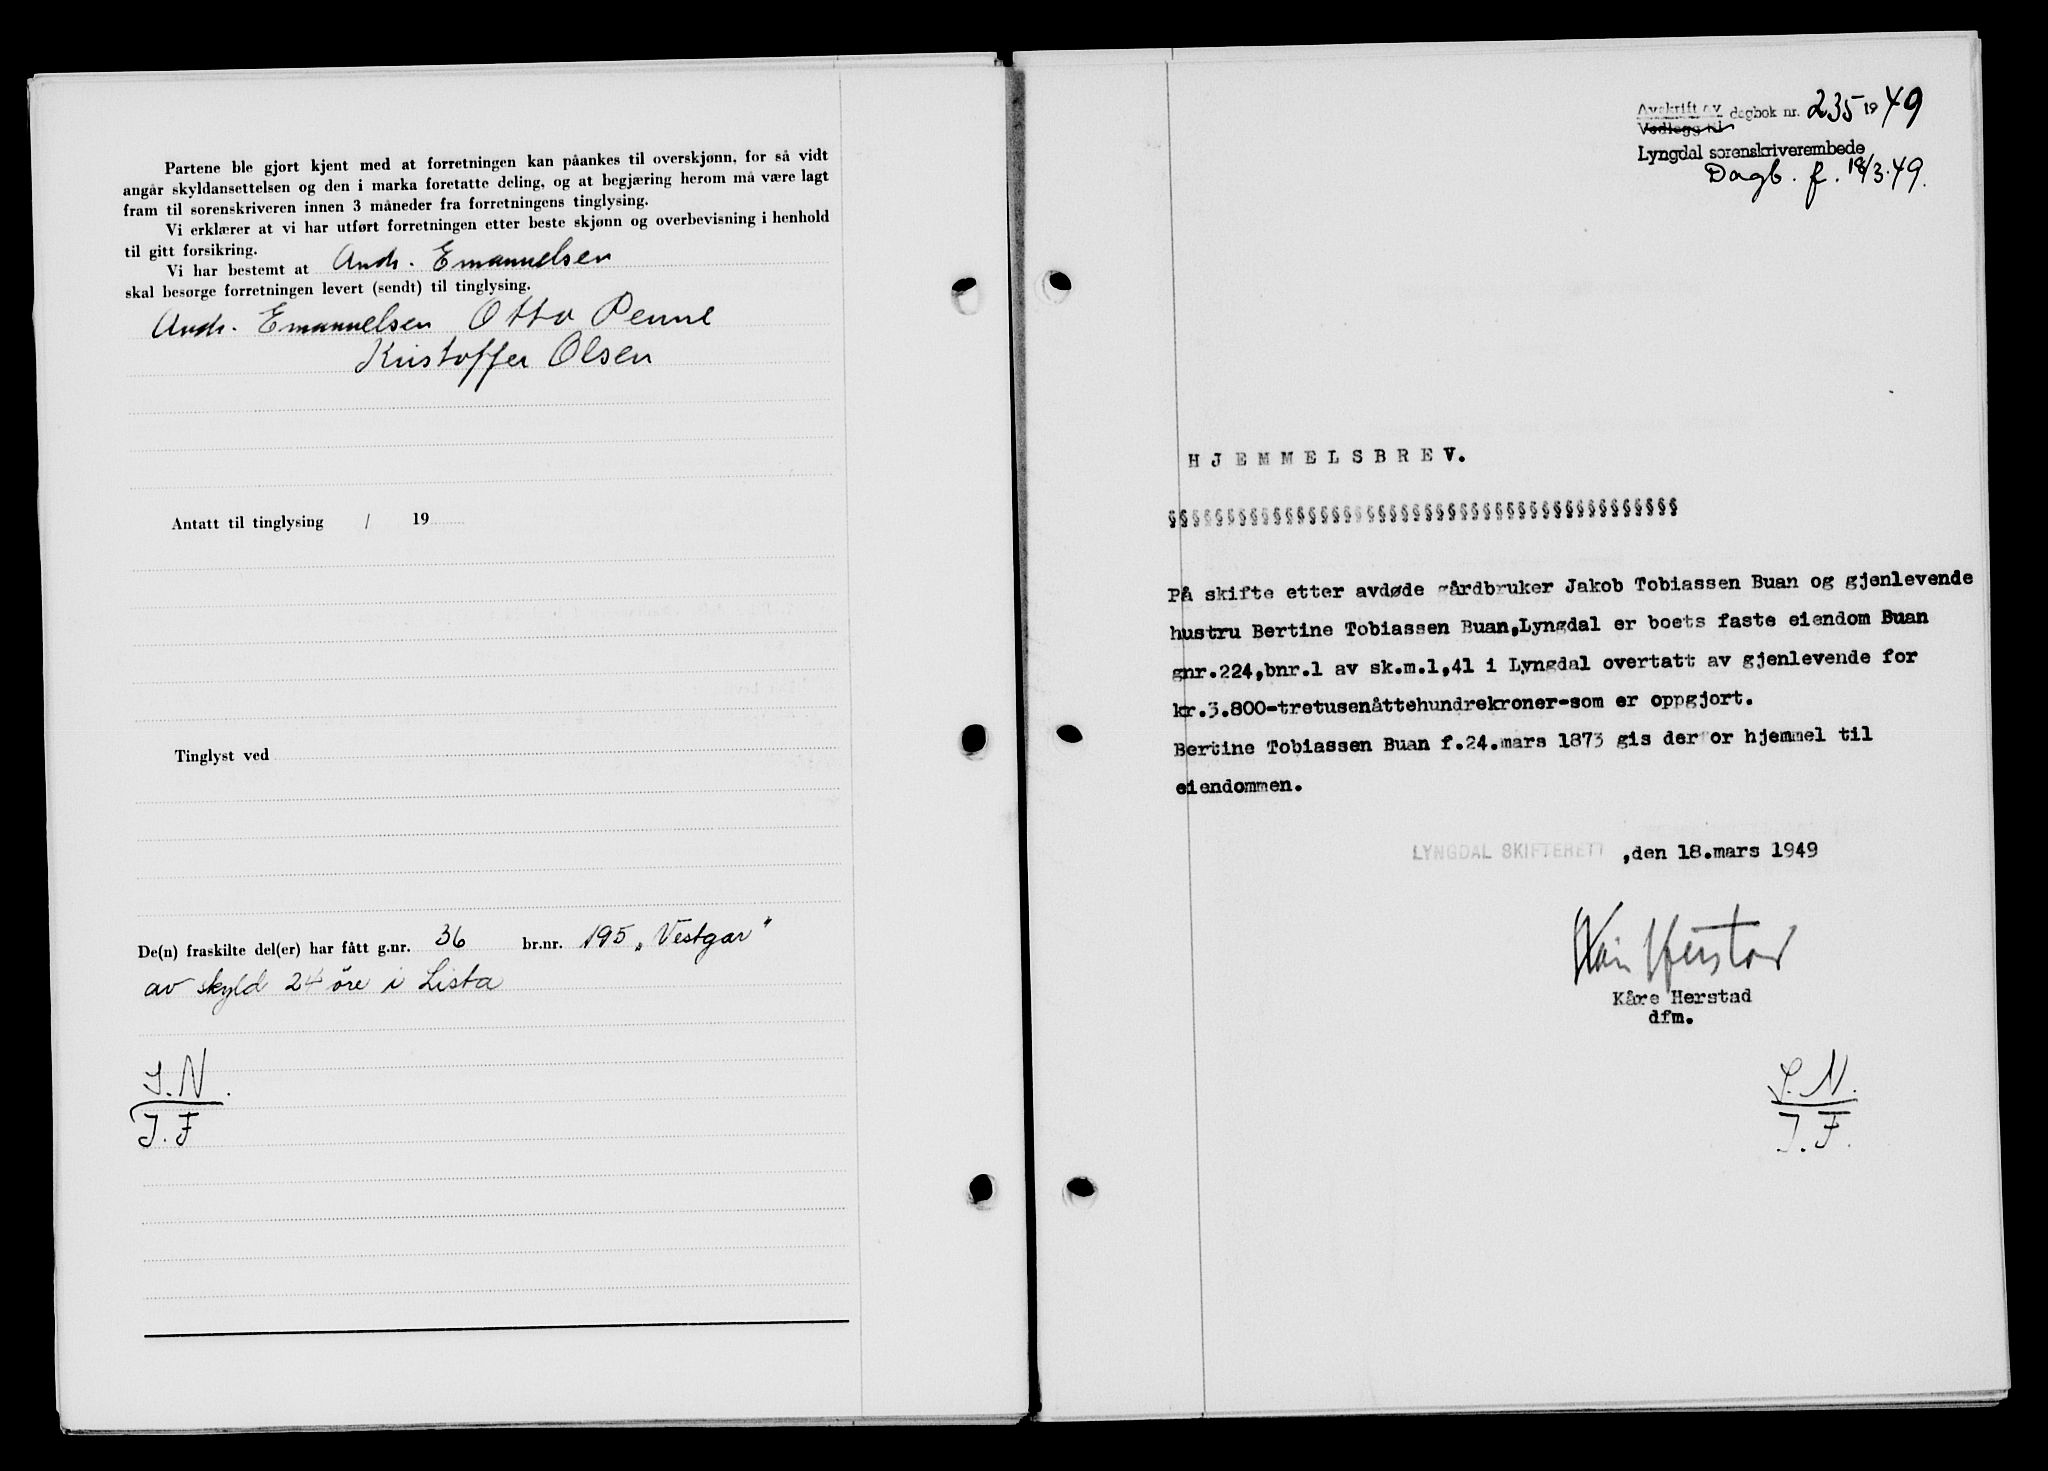 Partene ble gjort kjent med at forretningen kan påankes til overskjønn, for så vidt
angår skyldansettelsen og den i marka foretatte deling, og at begjæring herom må være lagt
fram til sorenskriveren innen 3 måneder fra forretningens tinglysing.
Vi erklærer at vi har utført forretningen etter beste skjønn og overbevisning i henhold
til gitt forsikring.
Vi har bestemt at Andr. Emanuelsen
skal besørge forretningen levert (sendt) til tinglysing.
Andr. Emanuelsen Otto Penne
Kristoffer Olsen
Antatt til tinglysing / 19
Tinglyst ved
De(n) fraskilte del(er) har fått g.nr. 36 br.nr. 195 „Vestgar"
av skyld 24 øre i Lista
S.N.
J.F
Avskrift av dagbok nr. 235 1949
Vedlegg til
Lyngdal sorenskriverembede
Dagb. f. 18/3.49.
HJEMMELSBREV.
§§§§§§§§§§§§§§§§§§§§§§§§§§§§§§§§§§§§§§§§§§§§
På skifte etter avdøde gårdbruker Jakob Tobiassen Buan og gjenlevende
hustru Bertine Tobiassen Buan,Lyngdal er boets faste eiendom Buan
gnr.224,bnr.1 av sk.m.1,41 i Lyngdal overtatt av gjenlevende for
kr.3.800-tretusenåttehundrekroner-som er oppgjort.
Bertine Tobiassen Buan f.24.mars 1873 gis derfor hjemmel til
eiendommen.
LYNGDAL SKIFTERETT ,den 18.mars 1949
Kåre Herstad
Kåre Herstad
dfm.
S.N.
J.F.